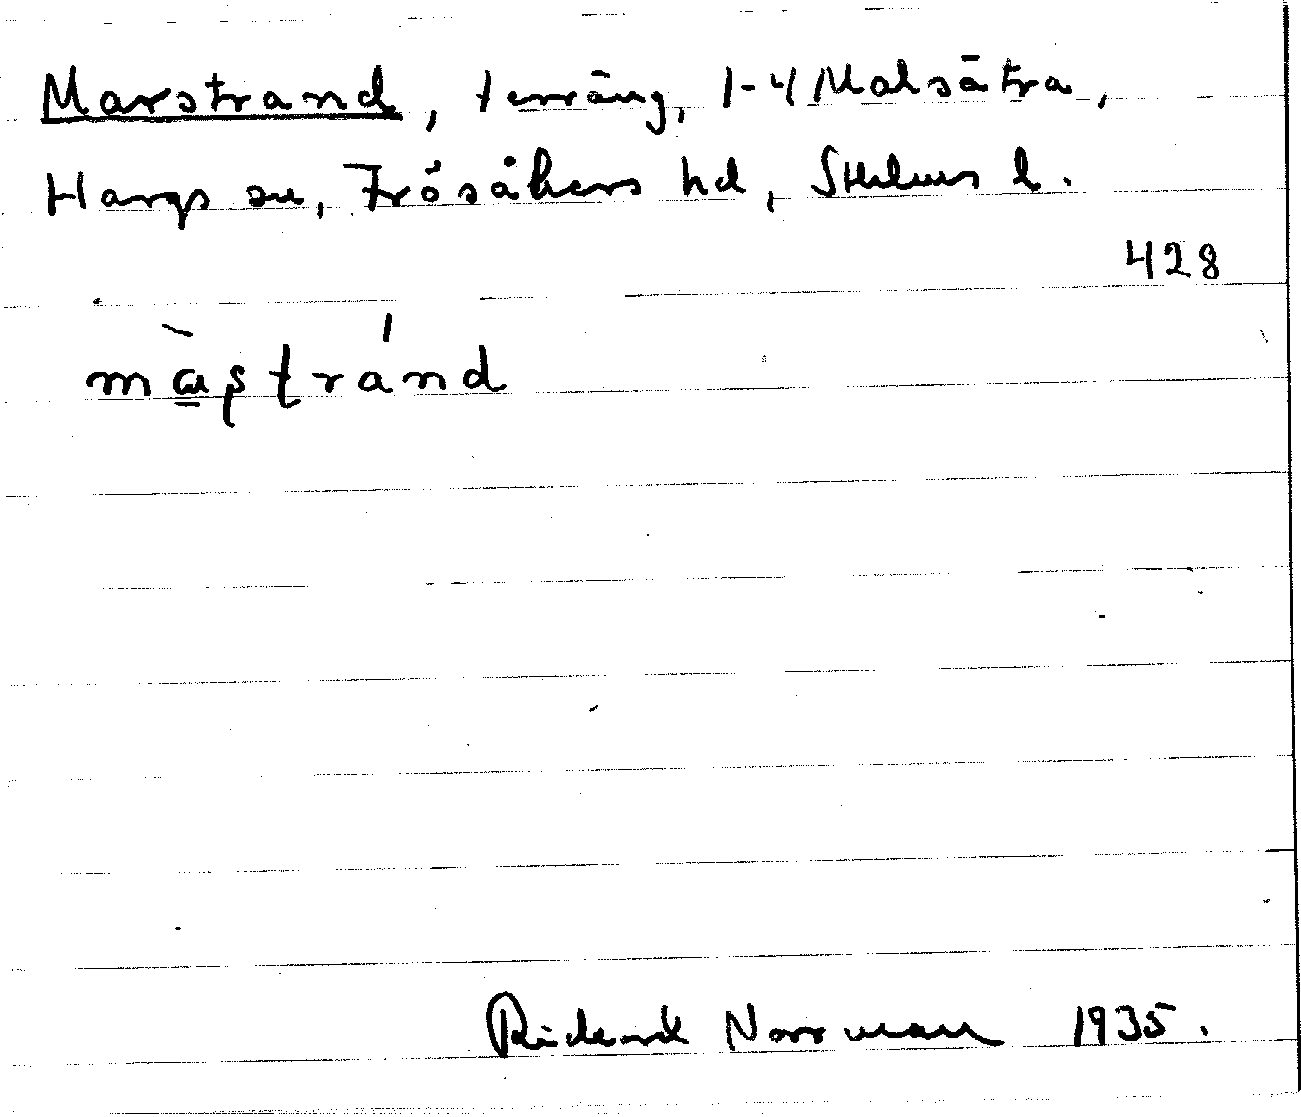 Marstrand, terräng, 1-4 Malsätra,
Hargs sn, Frösåkers hd, Sthlms l.
428
ma̠ʂʈrand
Rickard Norrman 1935.